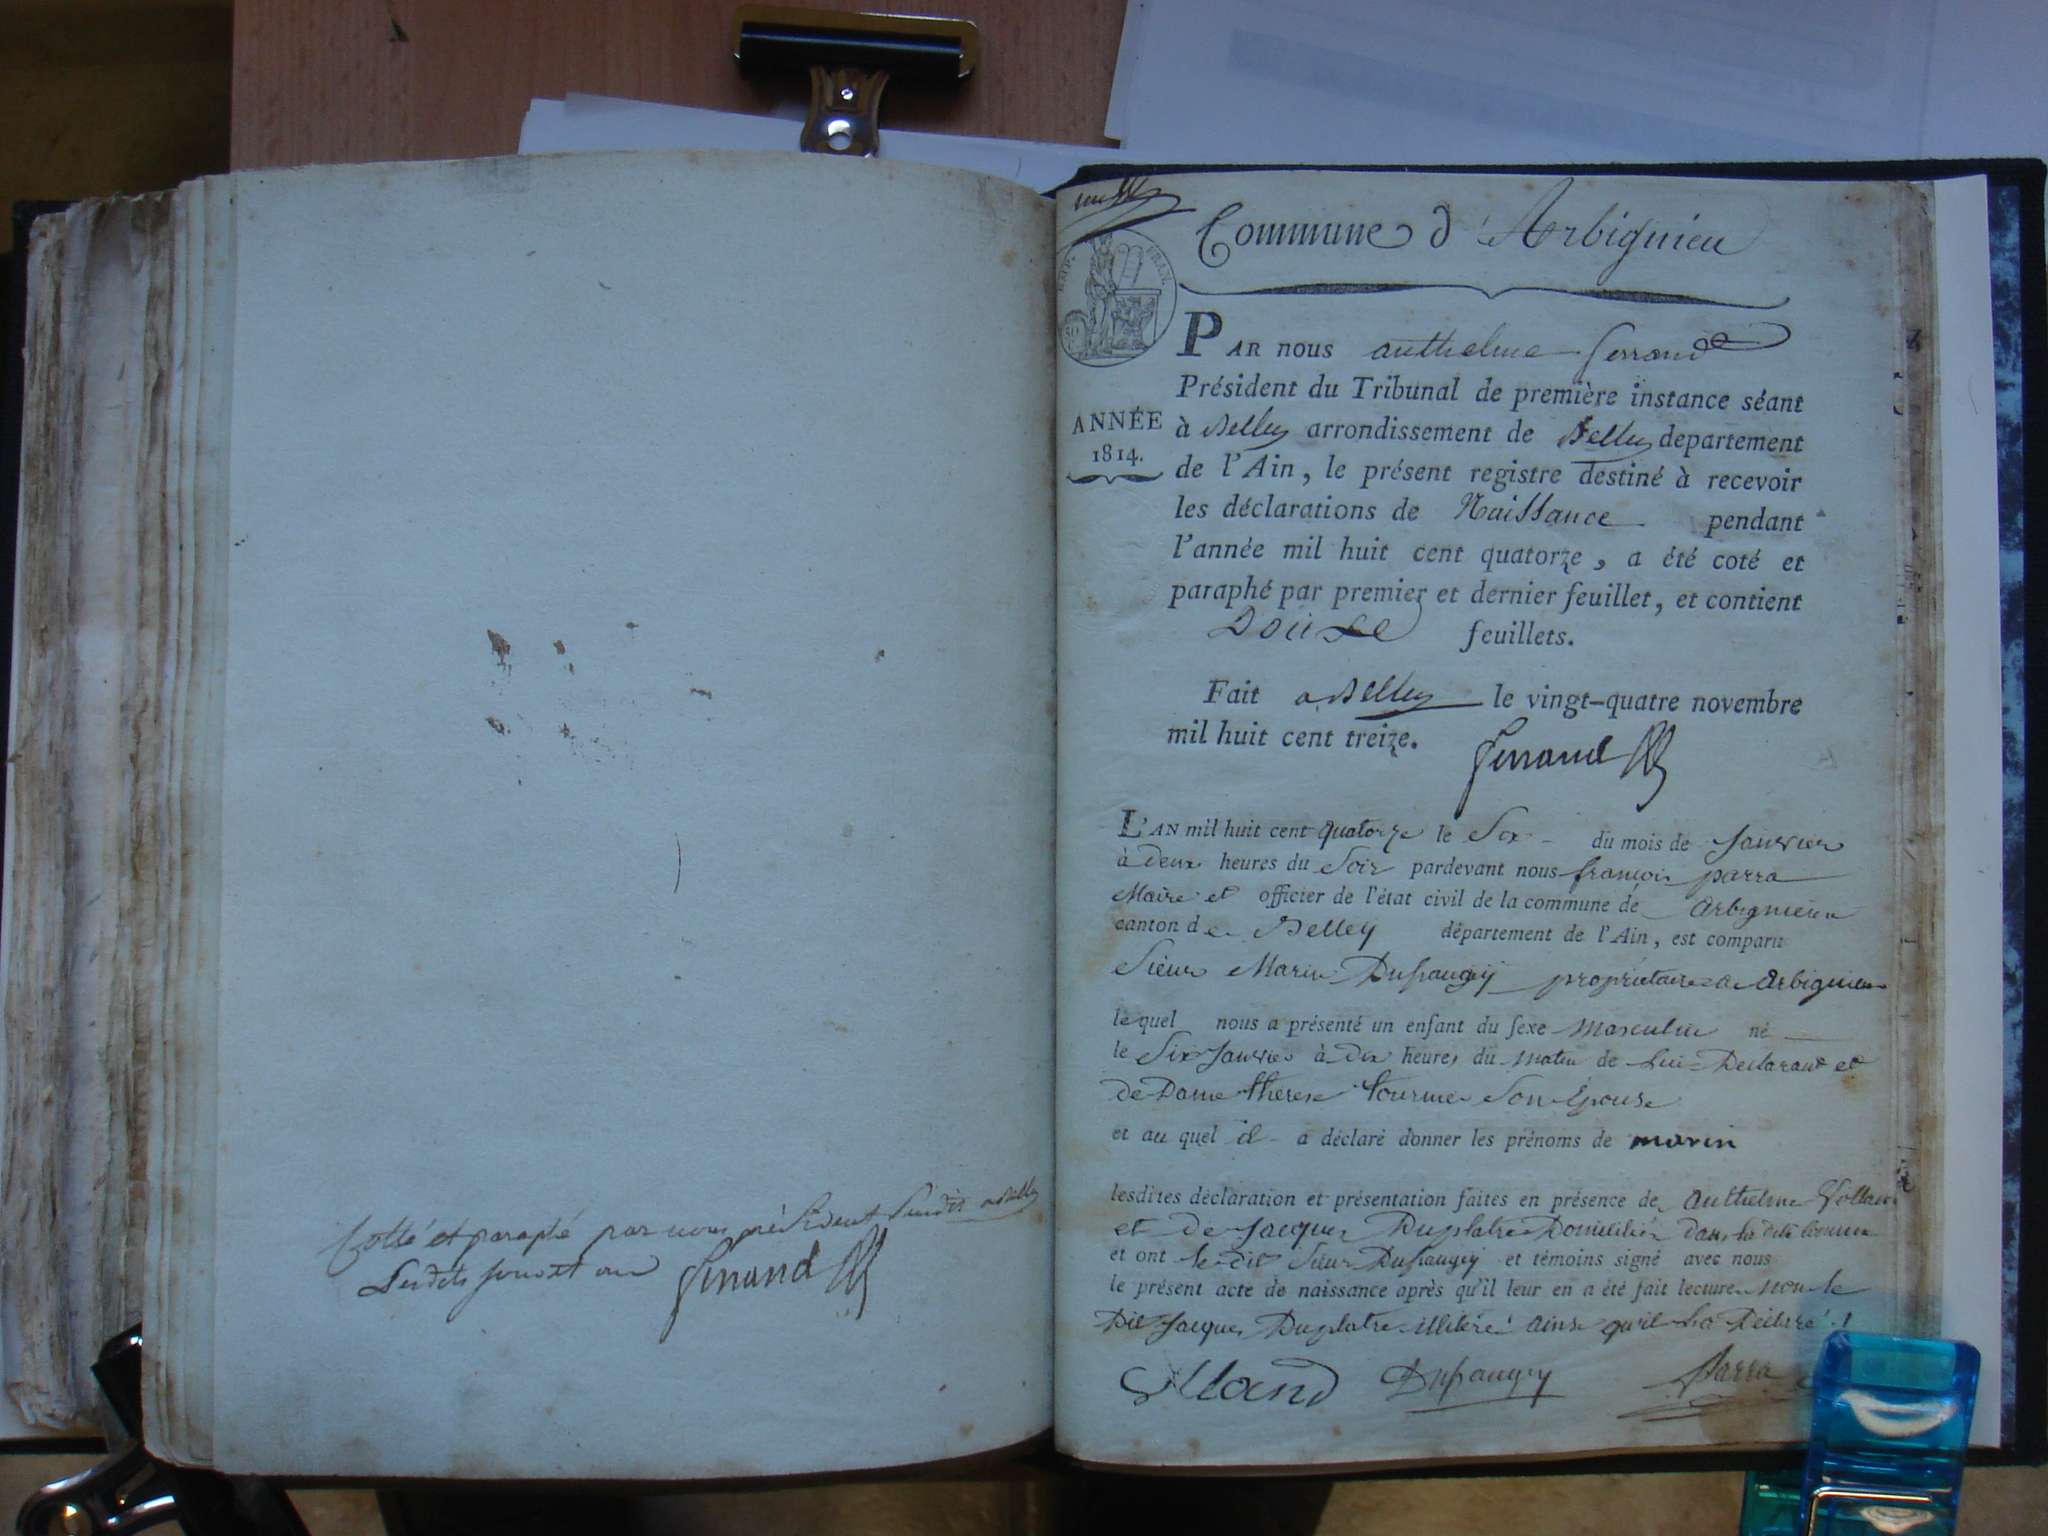 Cotté et paraphé par nous président Susdit a Belley
Lesdits jour et an Ferrand
Commune d'Arbignieu
EMP. FRAN.
PAR nous anthelme ferrand
Président du Tribunal de première instance séant
ANNÉE
1814.
à Belley arrondissement de Belley departement
de l'Ain, le présent registre destiné à recevoir
les déclarations de Naissance pendant
l'année mil huit cent quatorze, a été coté et
paraphé par premier et dernier feuillet, et contient
Douze feuillets.
Fait a Belley le vingt-quatre novembre
mil huit cent treize. Ferrand
L'AN mil huit cent quatorze le Six du mois de Janvier
à deux heures du Soir pardevant nous françois parra
Maire et officier de l'état civil de la commune de Arbignieu
canton de Belley département de l'Ain, est comparu
Sieur Marin Dupaugey proprietaire a Arbignieu
lequel nous a présenté un enfant du sexe Masculin né
le Six Janvier à dix heures du matin de Lui Declarant et
de Dame therese tournier Son Epouse
et au quel il a déclaré donner les prénoms de marin
lesdites déclaration et présentation faites en présence de Anthelme
et de Jacques Duplatre Domiciliés dans la dite Commune
et ont le dit Sieur Dupaugey et témoins signé avec nous
le présent acte de naissance après qu'il leur en a été fait lecture Non le
Dit Jacques Duplatre illiteré ainsi qu'il la Declaré.
Dupaugey Parra